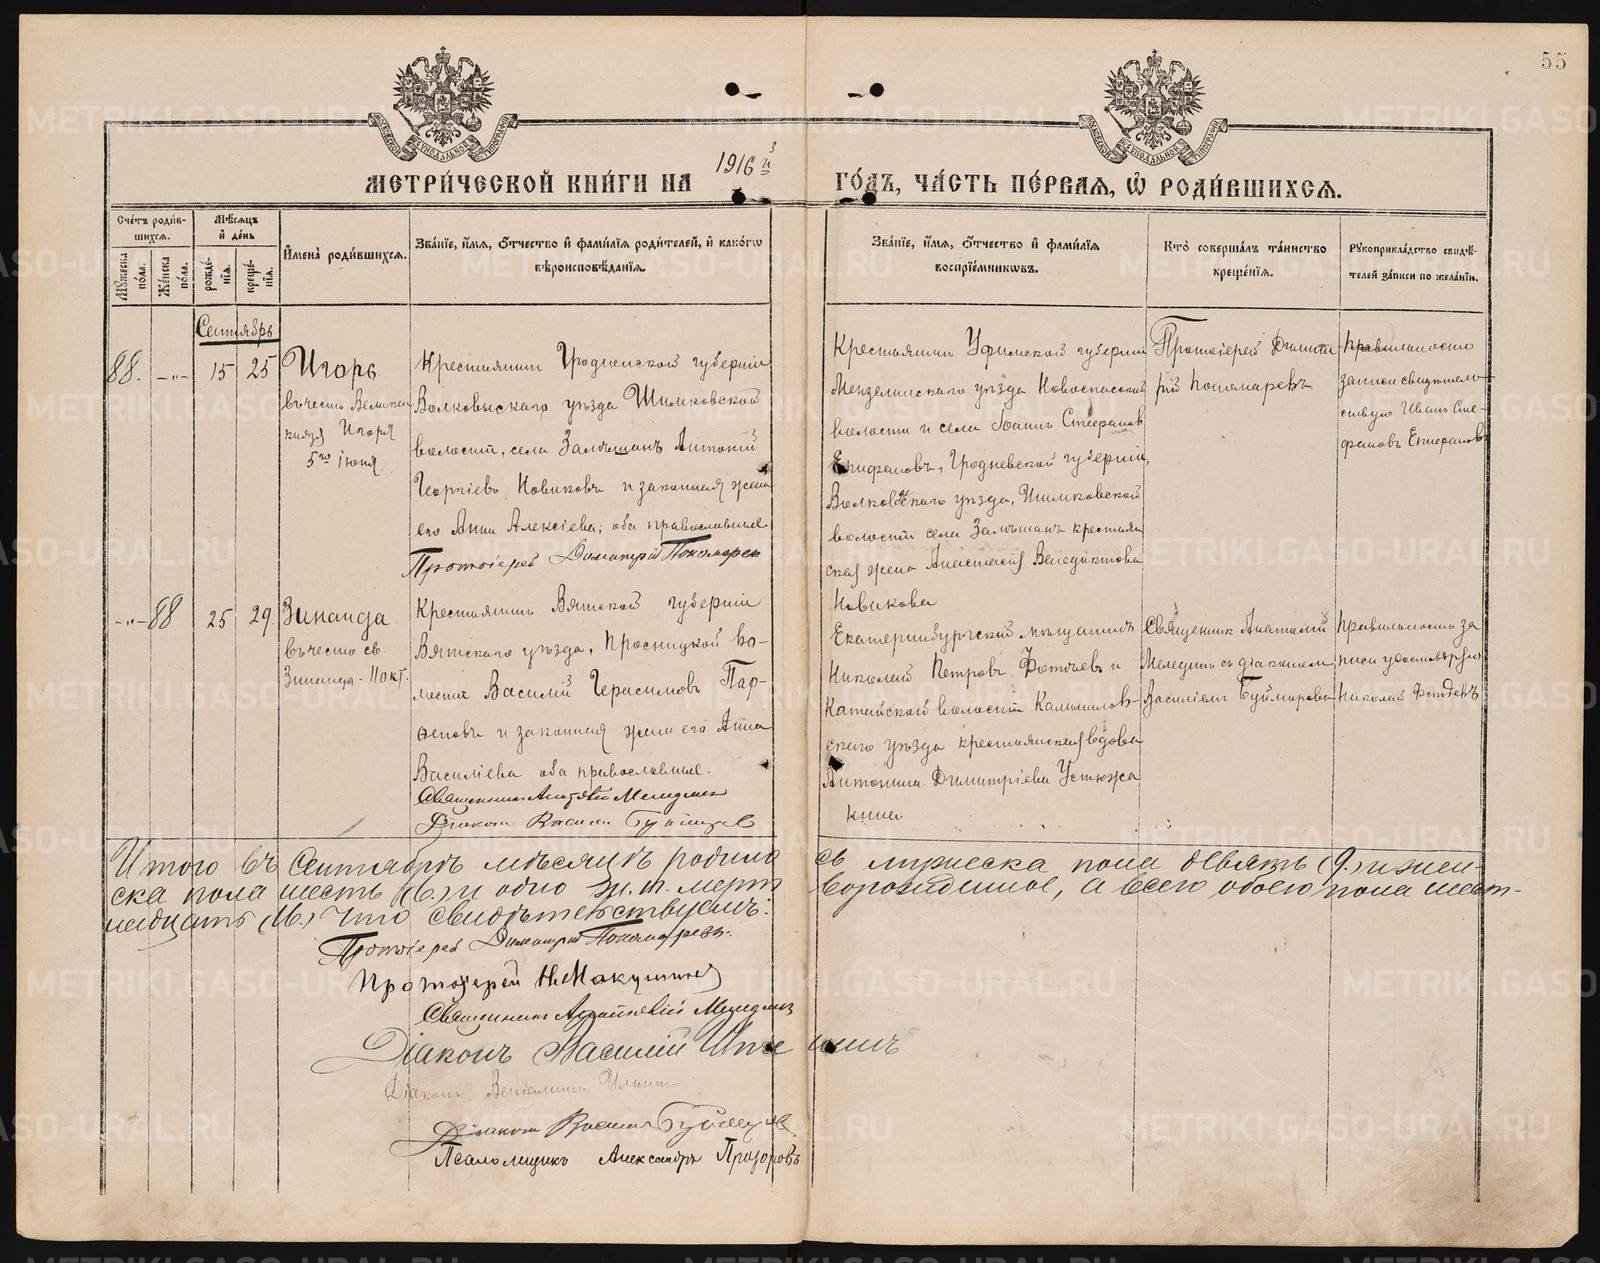 55
МЕТРИЧЕСКОЙ КНИГИ НА 1916й ГОДЪ, ЧАСТЬ ПЕРВАЯ, Ѡ РОДИВШИХСЯ.
Счетъ родившихся.
Мѣсяцъ и день
Мужеска пола.
Женска пола.
рожденія.
крещенія.
Имена родившихся.
Званіе, имя, отчество и фамилія родителей, и какого
вѣроисповѣданія.
Званіе, имя, отчество и фамилія
воспріемниковъ.
Кто совершалъ таинство
крещенія.
Рукоприкладство свидѣ-
телей записи по желанію.
Сентябрь
88. -"- 15 25
Игорь
въ честь Великаго
князя Игоря
5го Іюня
Крестьянинъ Гродненской губерніи
Волковыскаго уѣзда Шимковской
волости, села Залѣшанъ Антоній
Георгіевъ Новиковъ и законная жена
его Анна Алексіева, оба православные
Протоіерей Димитрій Пономаревъ
Крестьянинъ Уфимской губерніи
Мензелинскаго уѣзда Новоспасской
волости и села Іоаннъ Стефановъ
Епифановъ, Гродненской губерніи,
Волковыскаго уѣзда, Шимковской
волости села Залѣшанъ крестьян
ская жена Анастасія Венедиктова
Новикова
Протоіерей Димит-
рій Пономаревъ
Правильность
записи свидѣтель-
ствую Иванъ Сте-
фановъ Епифановъ
-"- 88 25 29
Зинаида
въ честь св.
Зинаиды 11 окт.
Крестьянинъ Вятской губерніи
Вятскаго уѣзда, Просницкой во-
лости Василій Герасимовъ Пар-
феновъ и законная жена его Анна
Василіева оба православные.
Священникъ Анатолій Мелединъ
Діаконъ Василій Буймировъ
Екатеринбургскій мѣщанинъ
Николай Петровъ и
Катайской волости Камышлов-
скаго уѣзда крестьянская вдова
Антонина Димитріева Устюжа
нина
Священникъ Анатолій
Меледин съ діакономъ
Василіемъ Буймировымъ
Правильность за
писи удостовѣряю
Николай
Итого въ Сентябрѣ мѣсяцѣ родилось мужеска пола девять (9) и жен-
ска пола шесть (6) и одно ж. п. мертворожденное, а всего обоего пола шест-
надцать (16.) Что свидѣтельствуемъ:
Протоіерей Димитрій Пономаревъ.
Протоіерей Н. Макушинъ
Священникъ Анатолій Меледин
Діаконъ Василій
Діаконъ Веніаминъ
Діаконъ Василій Буймировъ
Псаломщикъ Александръ Прозоровъ
METRIKI.GASO-URAL.RU